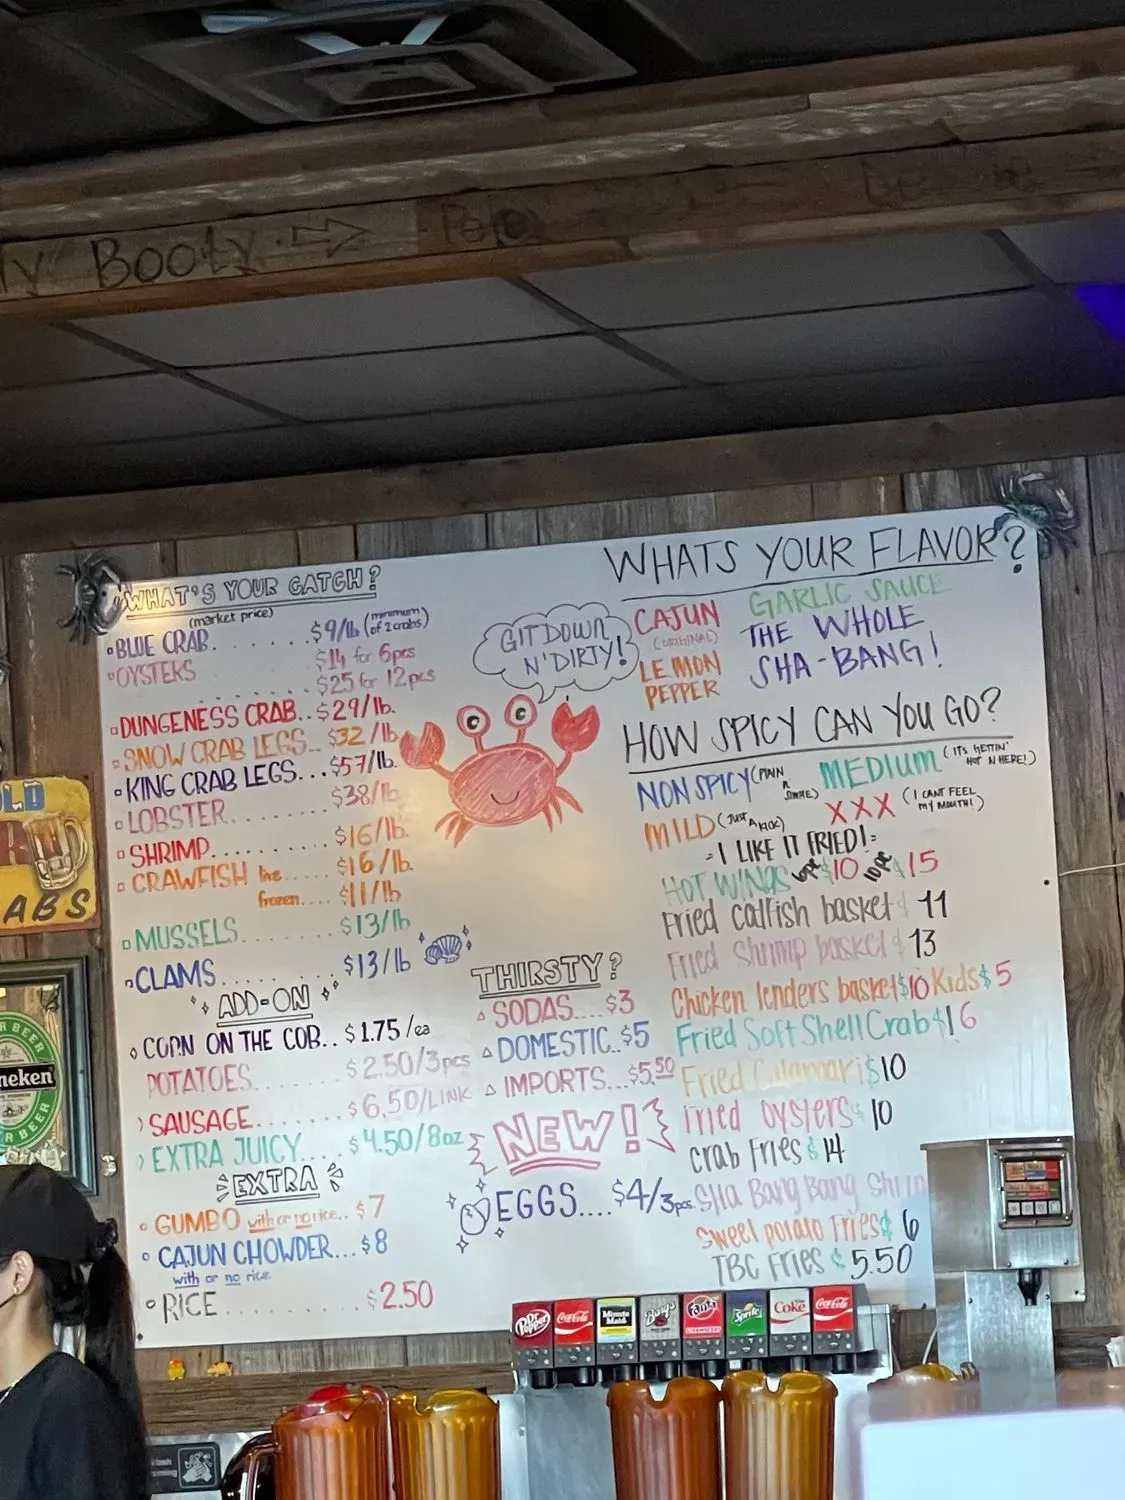 Booty
WHAT'S YOUR CATCH?
(market price)
BLUE CRAB....... $9/lb (minimum of 2 crabs)
OYSTERS $14 for 6pcs
........ $25 for 12pcs
DUNGENESS CRAB..$29/lb.
SNOW CRAB LEGS... $32/lb
KING CRAB LEGS...$57/lb.
LOBSTER......... $38/lb
SHRIMP.......... $16/lb.
CRAWFISH live..... $16/lb.
frozen.... $11/lb
MUSSELS....... $13/lb
CLAMS......... $13/lb
ADD-ON
CORN ON THE COB.. $1.75/ea
POTATOES....... $2.50/3pcs
SAUSAGE....... $6.50/LINK
EXTRA JUICY.... $4.50/8oz
EXTRA
GUMBO with or no rice.. $7
CAJUN CHOWDER...$8
with or no rice
RICE.......... $2.50
GIT DOWN
N' DIRTY!
THIRSTY?
SODAS....$3
DOMESTIC..$5
IMPORTS...$5.50
NEW!
EGGS....$4/3pcs
WHATS YOUR FLAVOR?
CAJUN
(ORIGINAL)
LEMON
PEPPER
GARLIC SAUCE
THE WHOLE
SHA-BANG!
HOW SPICY CAN YOU GO?
NON SPICY (PLAIN N SIMPLE)
MEDIUM (ITS GETTIN' HOT N HERE!)
MILD (JUST A KICK)
XXX (I CANT FEEL MY MOUTH!)
I LIKE IT FRIED!
HOT WINGS 6pc $10 10pc $15
Fried catfish basket $ 11
Fried Shrimp basket $ 13
Chicken tenders basket $10 Kids $5
Fried Soft Shell Crab $16
Fried Calamari $10
Fried oysters $ 10
crab Fries $ 14
Sha Bang Bang Shrim
Sweet potato Fries $ 6
TBC Fries $ 5.50
ABS
BEER
neken
Dr Pepper
Coca-Cola
Minute Maid
Barq's
Fanta
Sprite
Diet Coke
Coca-Cola